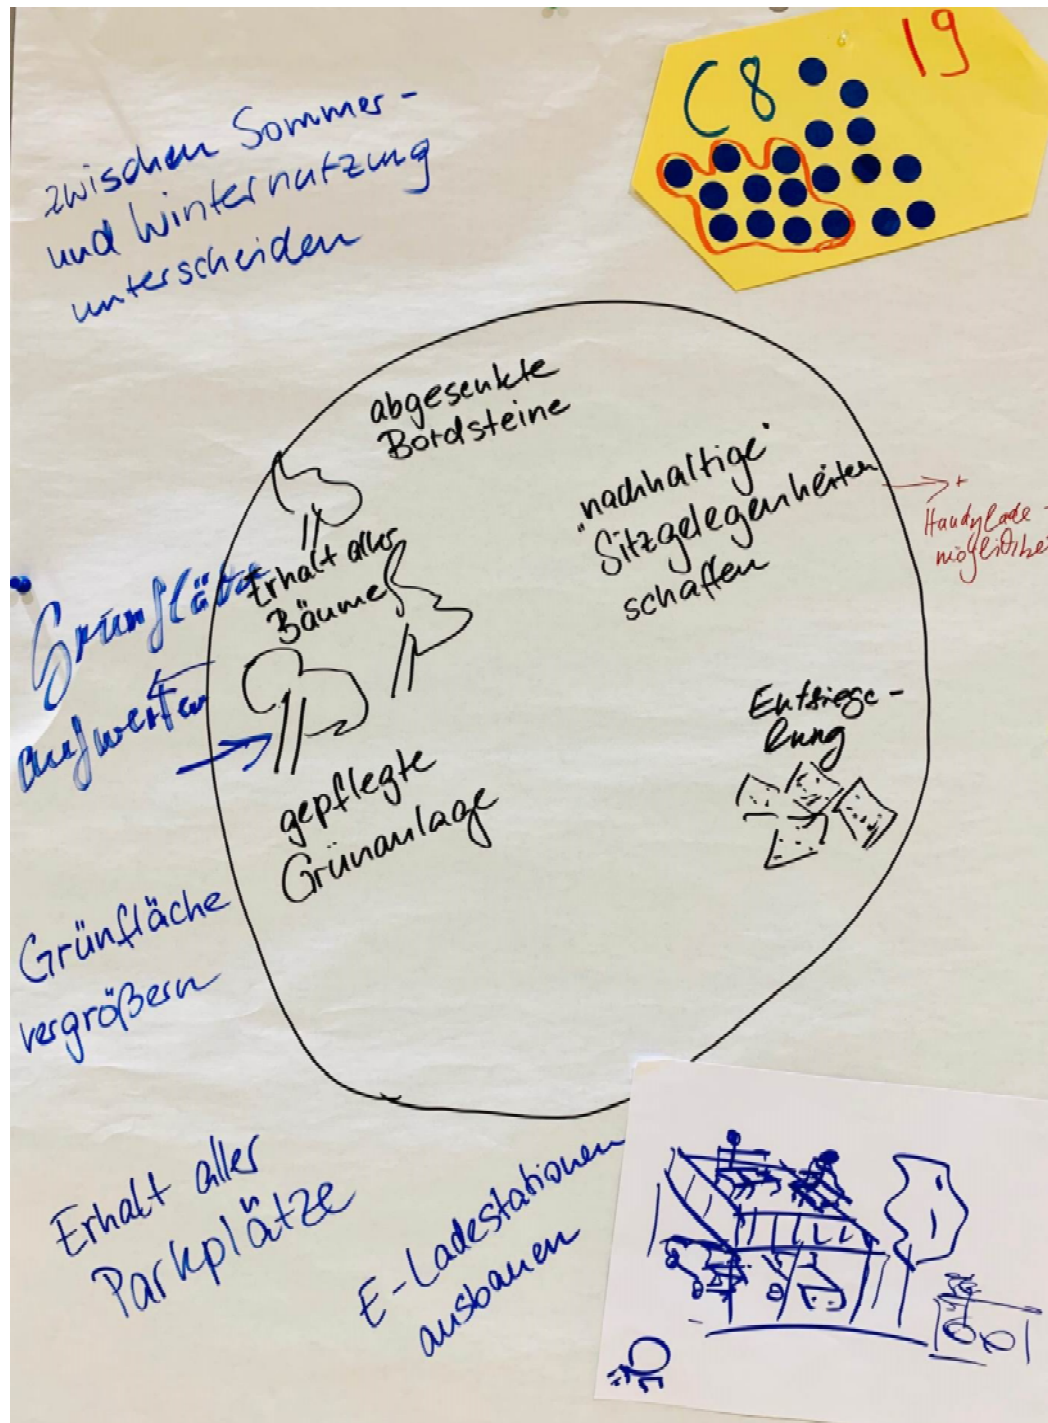 C8
19
zwischen Sommer-
und Winternutzung
unterscheiden
abgesenkte
Bordsteine
"nachhaltige"
Sitzgelegenheiten
schaffen
+
Handylade-
möglichkei
Erhalt aller
Bäume
Grünfläche
aufwerten
Entsiege-
lung
gepflegte
Grünanlage
Grünfläche
vergrößern
Erhalt aller
Parkplätze
E-Ladestationen
ausbauen